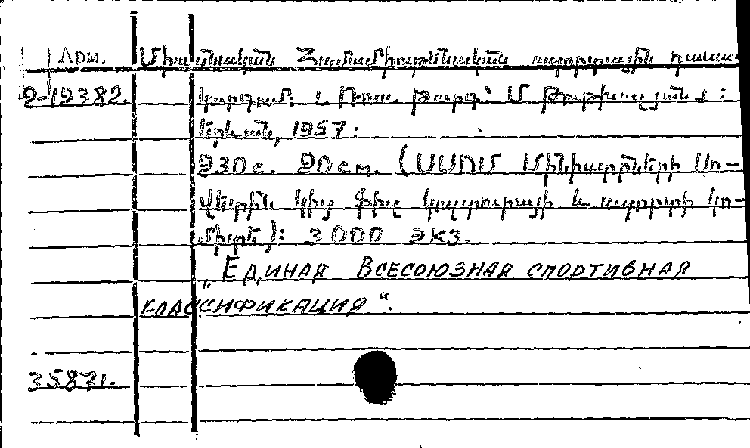 Արմ. Միասնական Համամիութենական սպորտային դասա-
2-19382. կարգում: Ռուս. թարգ.՝ Մ.
Երևան, 1957:
930с. 20см. (ՍՍՌՄ Մինիստրների Սո-
վետին կից ֆիզ կուլտուրայի և սպորտի կո-
միտե): 3000 экз.
„Единая Всесоюзная спортивная
классификация“.
35871.